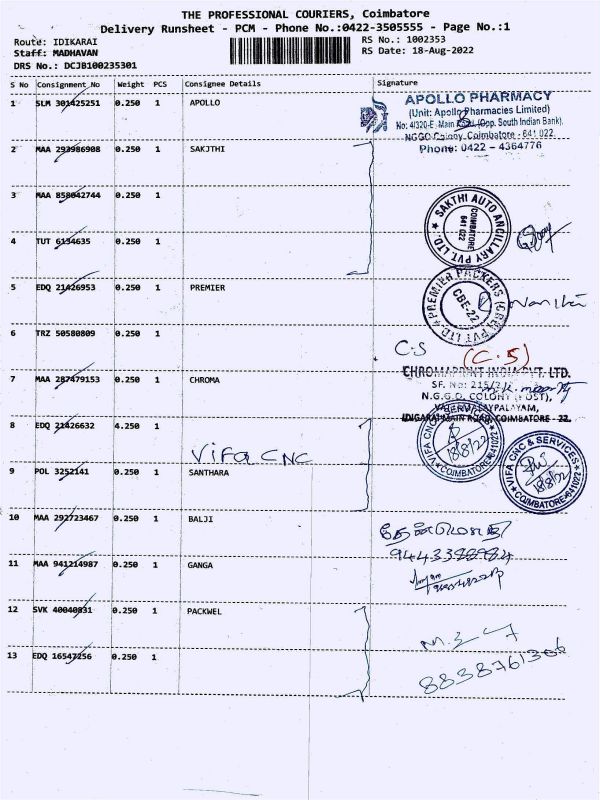 THE PROFESSIONAL COURIERS, Coimbatore
Delivery Runsheet - PCM - Phone No.:0422-3505555 - Page No.:1
Route: IDIKARAI
RS No.: 1002353
Staff: MADHAVAN
RS Date: 18-Aug-2022
DRS No.: DCJB100235301
S No Consignment No Weight PCS Consignee Details Signature
1 SLM 301425251 0.250 1 APOLLO
APOLLO PHARMACY
(Unit: Apollo Pharmacies Limited)
No: 4/320-E Main Road, (Opp. South Indian Bank),
NGGO Colony, Coimbatore - 641 022.
Phone: 0422 - 4364776
2 MAA 293986908 0.250 1 SAKJTHI
3 MAA 858042744 0.250 1
SAKTHI AUTO ANCILLARY PVT LTD.
COIMBATORE
641 022
4 TUT 6134635 0.250 1
5 EDQ 21426953 0.250 1 PREMIER
PREMIER PACKERS (CBE) PVT LTD
CBE-22
6 TRZ 50580809 0.250 1
C.S (C.S)
7 MAA 287479153 0.250 1 CHROMA
CHROMAPRINT INDIA PVT. LTD.
SF. No: 215/
N.G.G.O. COLONY (POST),
IDIGARAI MAIN ROAD, COIMBATORE - 22.
8 EDQ 21426632 4.250 1
VIFA CNC
VIFA CNC & SERVICES
18/8/22
COIMBATORE-641022
VIFA CNC & SERVICES
18/8/22
COIMBATORE-641022
9 POL 3252141 0.250 1 SANTHARA
10 MAA 292723467 0.250 1 BALJI
11 MAA 941214987 0.250 1 GANGA
12 SVK 40040831 0.250 1 PACKWEL
13 EDQ 16547256 0.250 1
8838761306